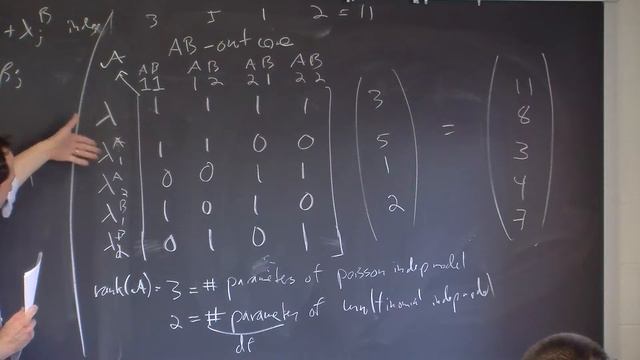 + λ_j^B indep
3 5 1 2 = 11
β_j
AB-outcome
A
AB AB AB AB
11 12 21 22
λ 1 1 1 1
λ_1^A 1 1 0 0
λ_2^A 0 0 1 1
λ_1^B 1 0 1 0
λ_2^B 0 1 0 1
3
5
1
2
=
11
8
3
4
7
rank(A) = 3 = # parameters of poisson indep model
2 = # parameter of multinomial indep model
df